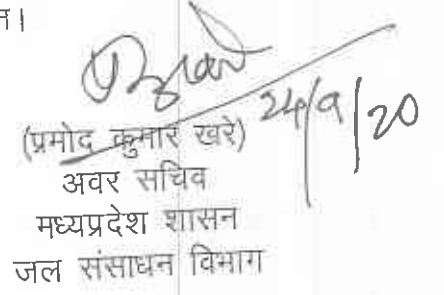 24/9/20
(प्रमोद कुमार खरे)
अवर सचिव
मध्यप्रदेश शासन
जल संसाधन विभाग